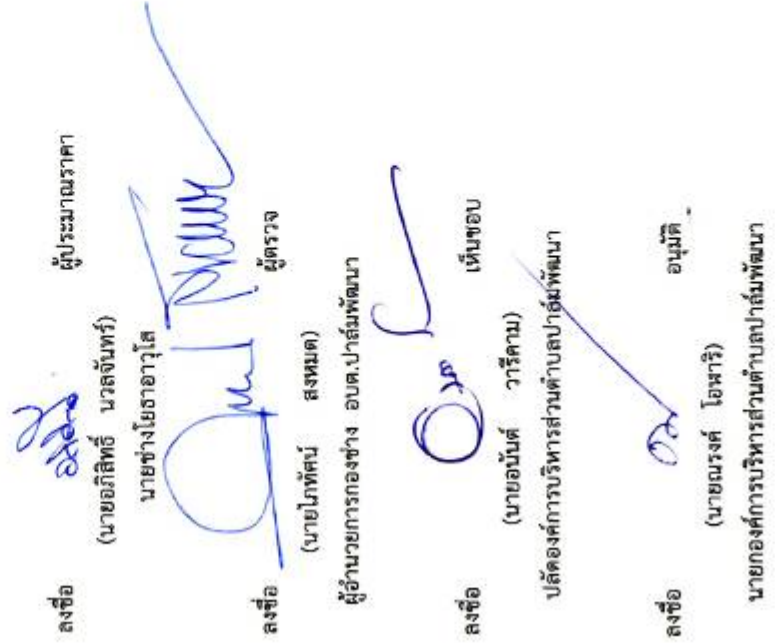 ลงชื่อ ผู้ประมาณราคา
(นายอภิสิทธิ์ นวลจันทร์)
นายช่างโยธาอาวุโส
ลงชื่อ ผู้ตรวจ
(นายไภทัศน์ สงหมด)
ผู้อำนวยการกองช่าง อบต.ปาล์มพัฒนา
ลงชื่อ เห็นชอบ
(นายอนันต์ วารีคาม)
ปลัดองค์การบริหารส่วนตำบลปาล์มพัฒนา
ลงชื่อ อนุมัติ
(นายณรงค์ โอฬาริ)
นายกองค์การบริหารส่วนตำบลปาล์มพัฒนา